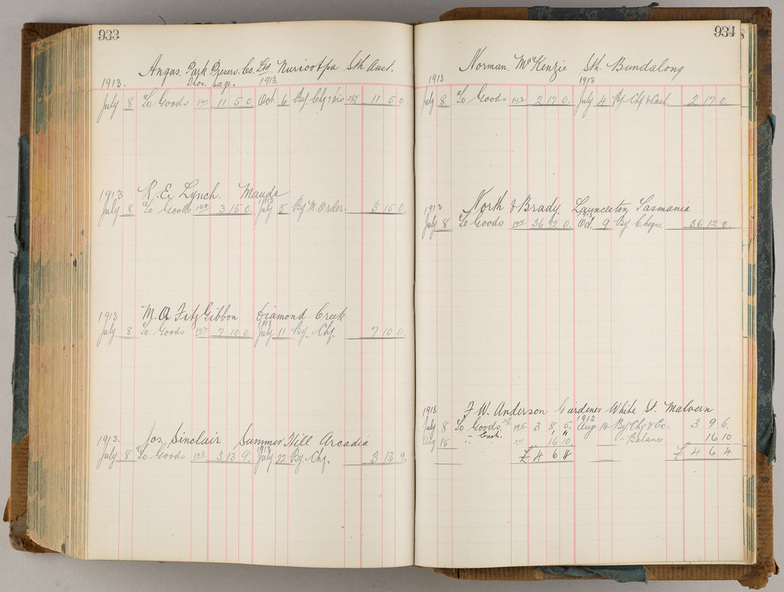 933
Angas Park Presers. Co. Ltd Nuriootpa Sth Aust.
1913. 1913
July 8 To Goods 11 5 0 Oct 6 By Chq 11 5 0
1913 R. E. Lynch. Maude
July 8 To Goods 3 15 0 July 8 By M. Order 3 15 0
1913 M. A FitzGibbon Diamond Creek
July 8 To Goods 7 10 0 July 11 By Chq. 7 10 0
1913. Jos. Sinclair Summer Hill Arcadia
July 8 To Goods 3 13 9. July 22 By Chq. 3 13 9
934
Norman McKenzie Sth. Bundalong
1913 1913
July 8 To Goods 2 17 0. July 4 By Chq & Cash 2 17 0
1913 North & Brady. Launceston Tasmania
July 8 To Goods 36 12 0. Oct. 9 By Cheque 36 12 0
1913 F. W. Anderson Gardener White St. Malvern
July 8 To Goods 3 8 5. Aug 14 By Chq & Co. 3 9 6.
Aug 15 " Cash. 16 10 " Balance 16 10
£ 4 6 4 £ 4 6 4